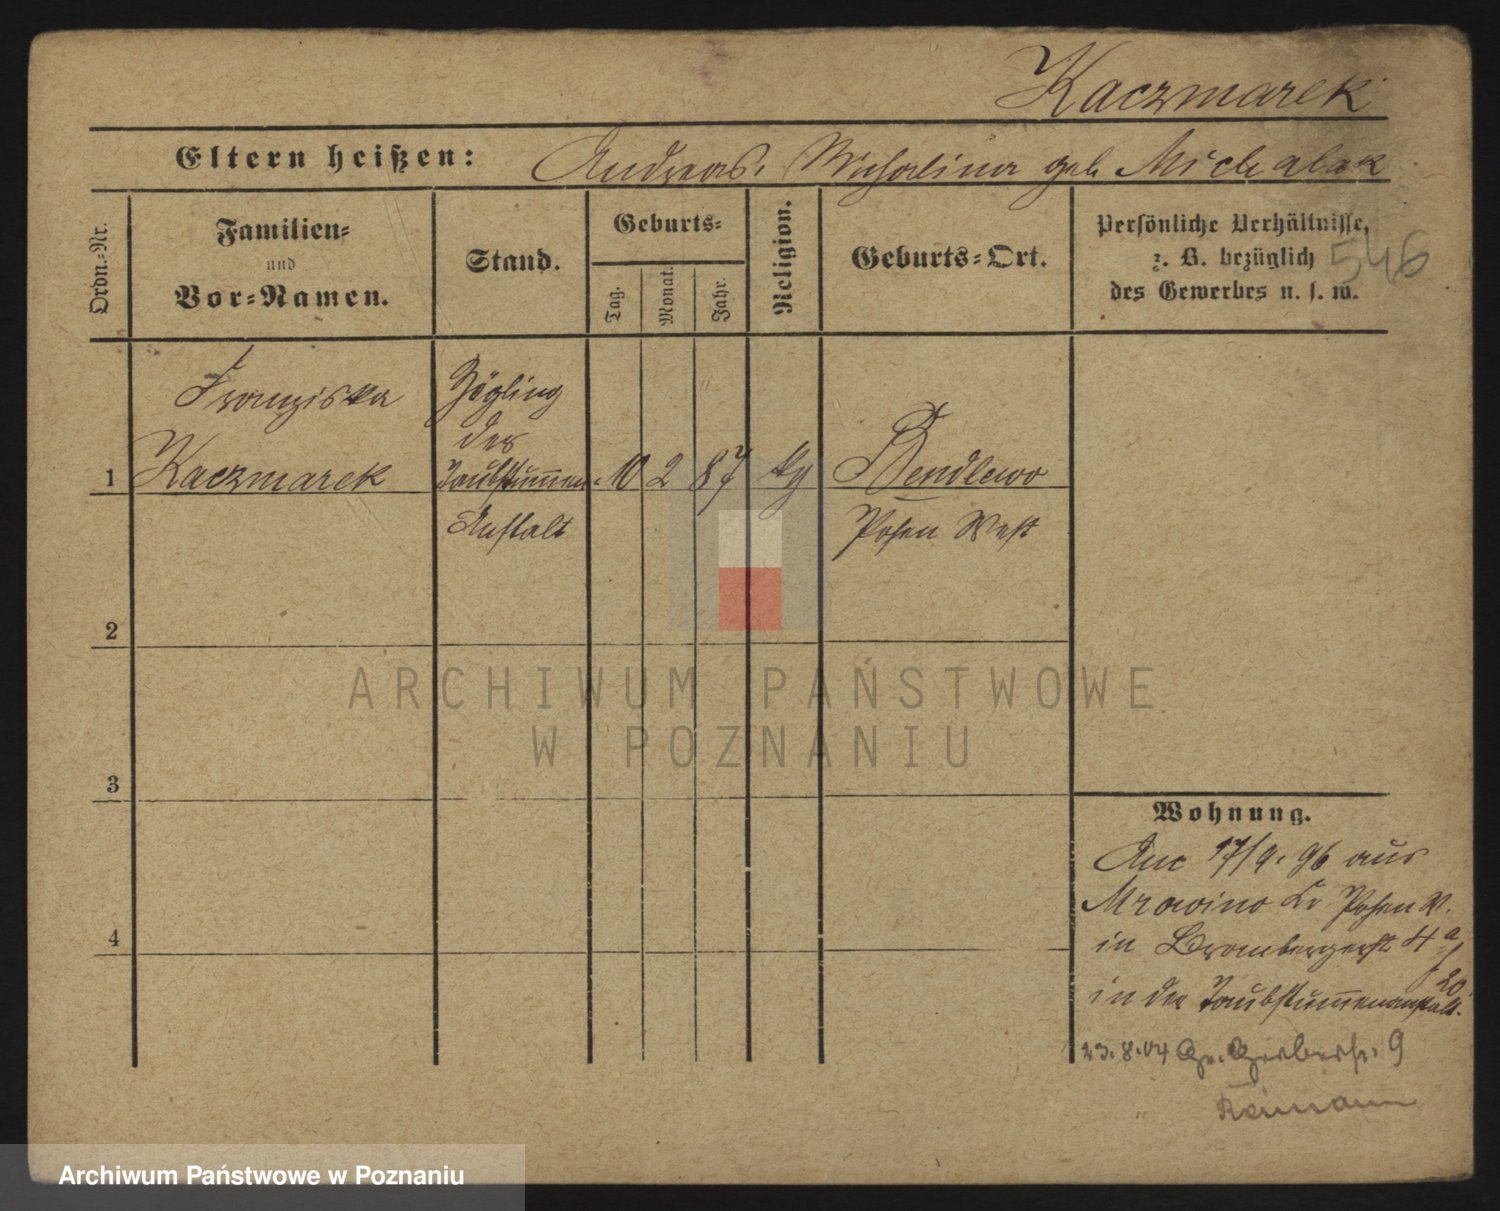 Kaczmarek
Eltern heißen: Andreas, Michalina geb. Michalak
Ordn.-Nr.
Familien-
und
Vor-Namen.
Stand.
Geburts-
Tag.
Monat.
Jahr.
Religion.
Geburts-Ort.
Persönliche Verhältnisse,
z. B. bezüglich
des Gewerbes u. s. w.
546
Franziska
Kaczmarek
Zögling
der
Taubstummen-
Anstalt
1
10 2 87 kg
Bendlewo
Posen West
2
3
4
Wohnung.
17/9. 96 aus
Mrowino Kr Posen W.
in Brombergerstr 4 a
20
in der Taubstummenanstalt.
23.8.04 Gr. Gerberstr. 9
Reimann
ARCHIWUM PAŃSTWOWE
W POZNANIU
Archiwum Państwowe w Poznaniu